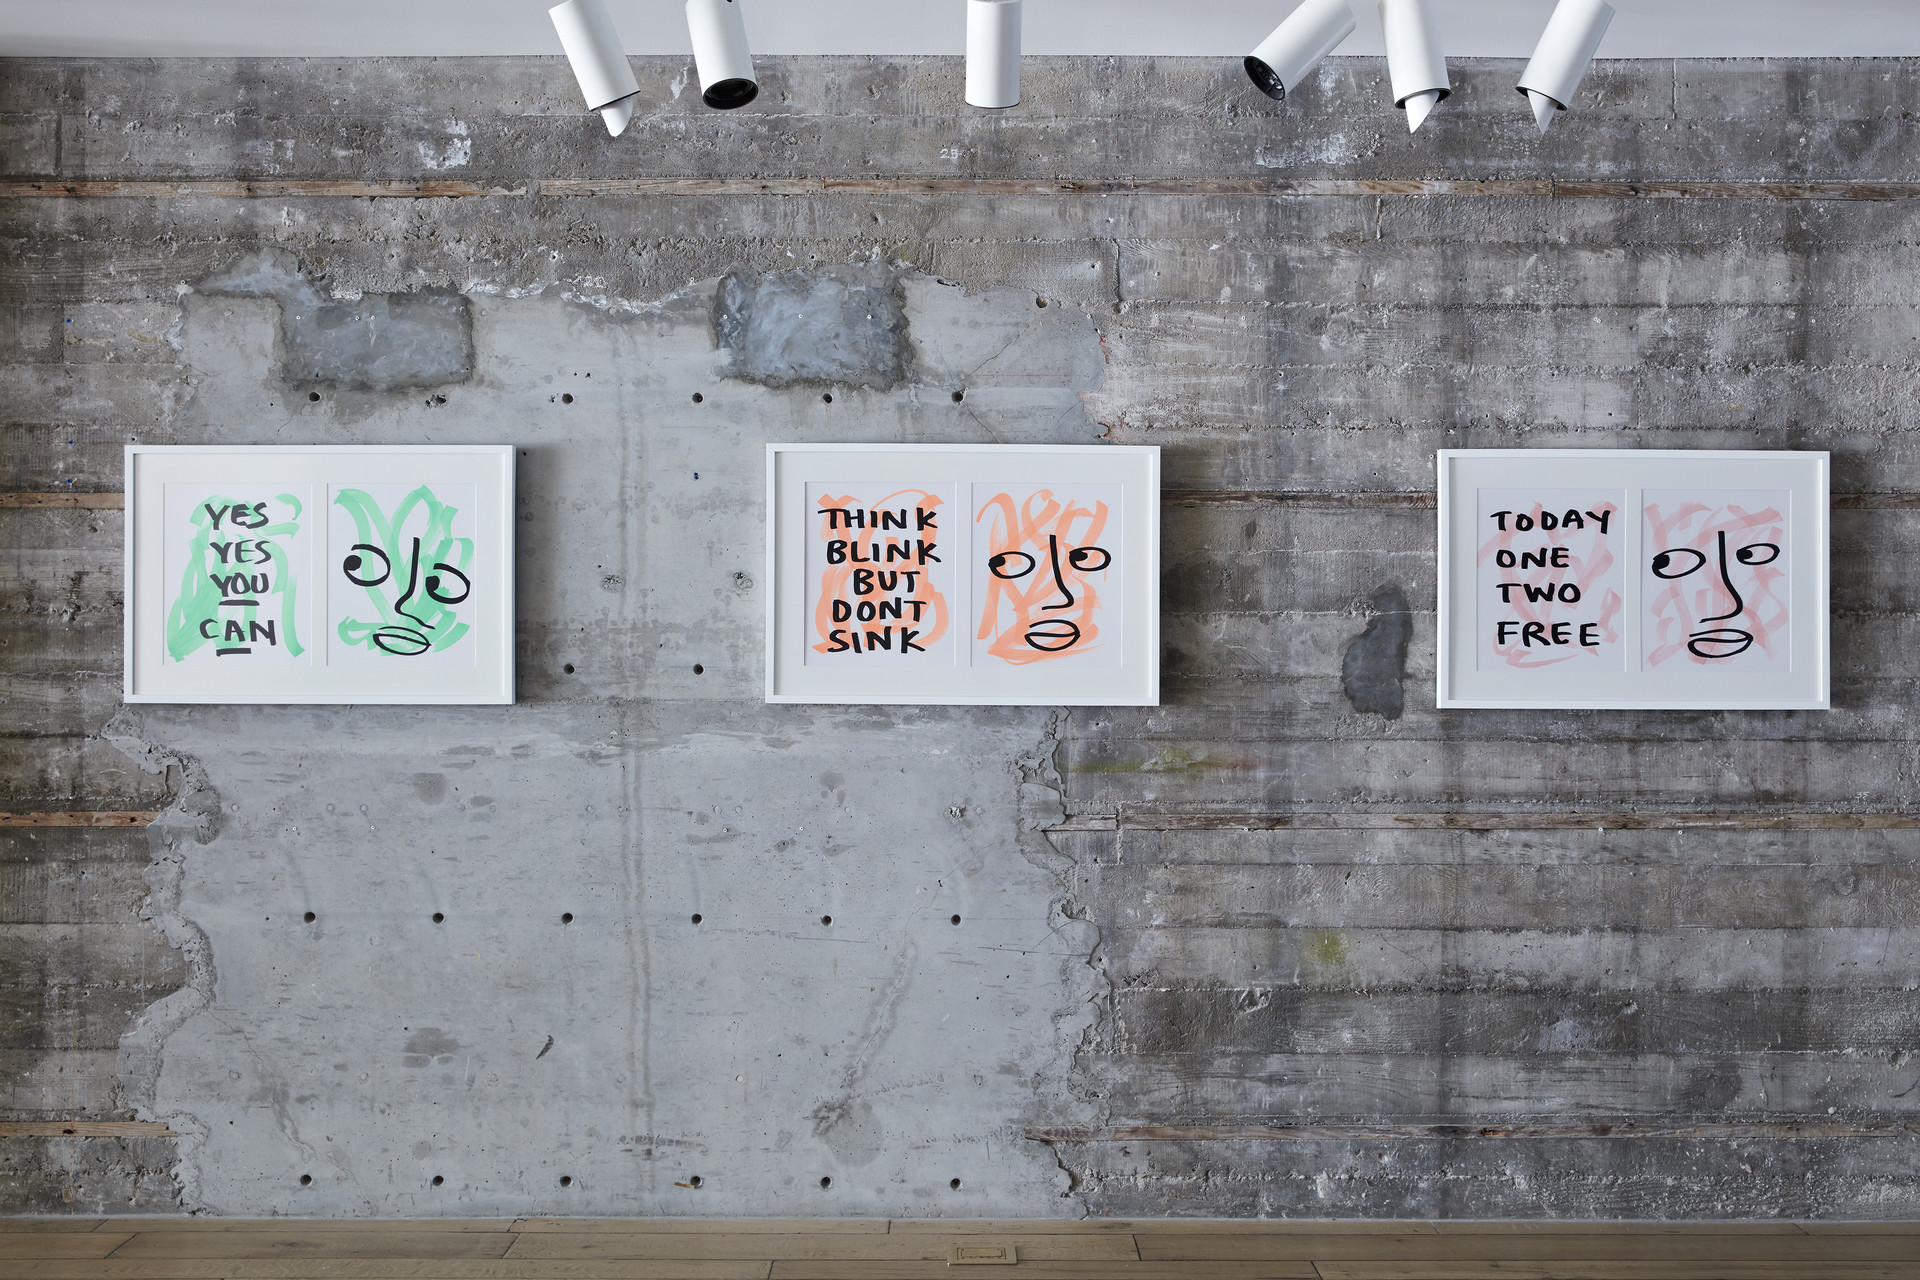 YES
YES
YOU
CAN
THINK
BLINK
BUT
DONT
SINK
TODAY
ONE
TWO
FREE